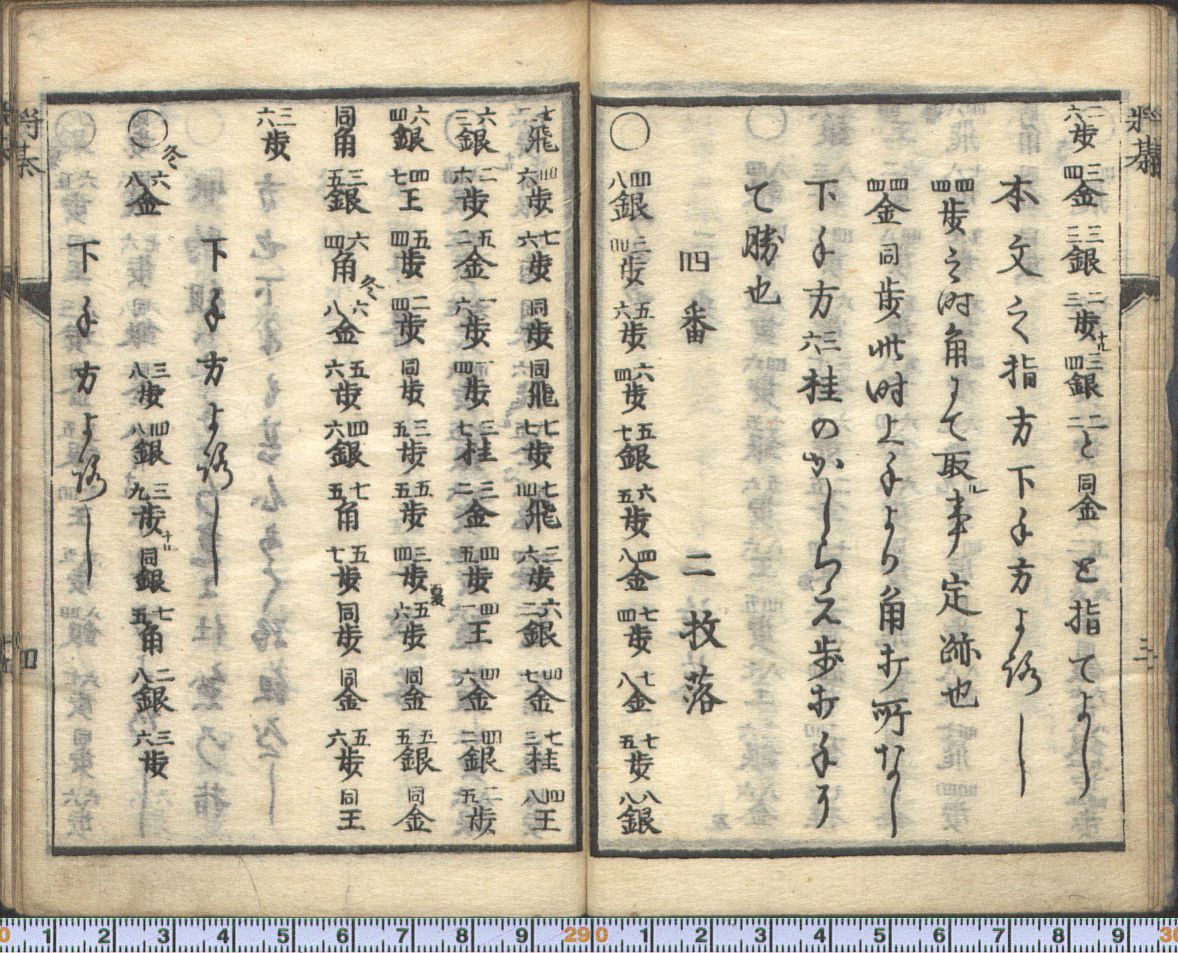 将棊
三
二六歩 三四金 三二銀 二三歩 三四銀 二二と 同金 と指てよし
本文之指方下手方よろし
四四歩之時角にて取事定跡也
四四金同歩此時上手より角打所なし
下手方三六桂のかしらえ歩打手有
て勝也
四番 二枚落
○ 四八銀 三四歩 五六歩 六四歩 五七銀 六五歩 四八金 七四歩 七八金 七五歩 八八銀
七二飛 四六歩 七六歩 同歩 同飛 七七歩 七四飛 三六歩 六二銀 四七金 七三桂 四八王
六三銀 二六歩 五二金 一六歩 一四歩 三七桂 三二金 四五歩 四一王 四六金 四二銀 二五歩
六四銀 四七王 五四歩 二四歩 同歩 三五歩 五五歩 三四歩 五六歩 同金 五五銀 同金
同角 三五銀 六四角 六八金 五六歩 四六銀 七五角 五七歩 同歩 同金 五六歩 同王
三六歩
下手方よろし
○ 六八金 三八歩 四八銀 三九歩 同銀 七五角 二八銀 三六歩
下手方よろし
将棊
四